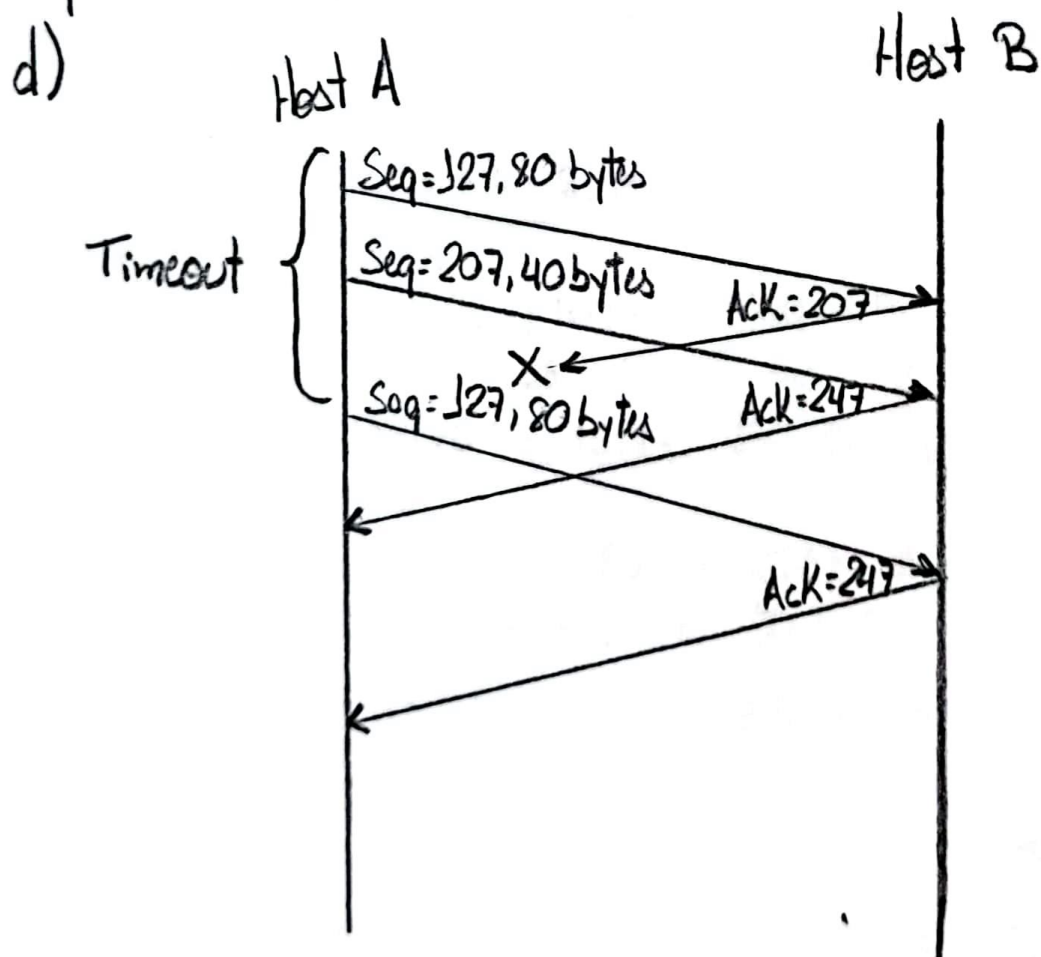 d)
Host A
Host B
Timeout
Seq=127,80 bytes
Seq=207,40bytes
Ack=207
X
Seq=127,80bytes
Ack=247
Ack=247